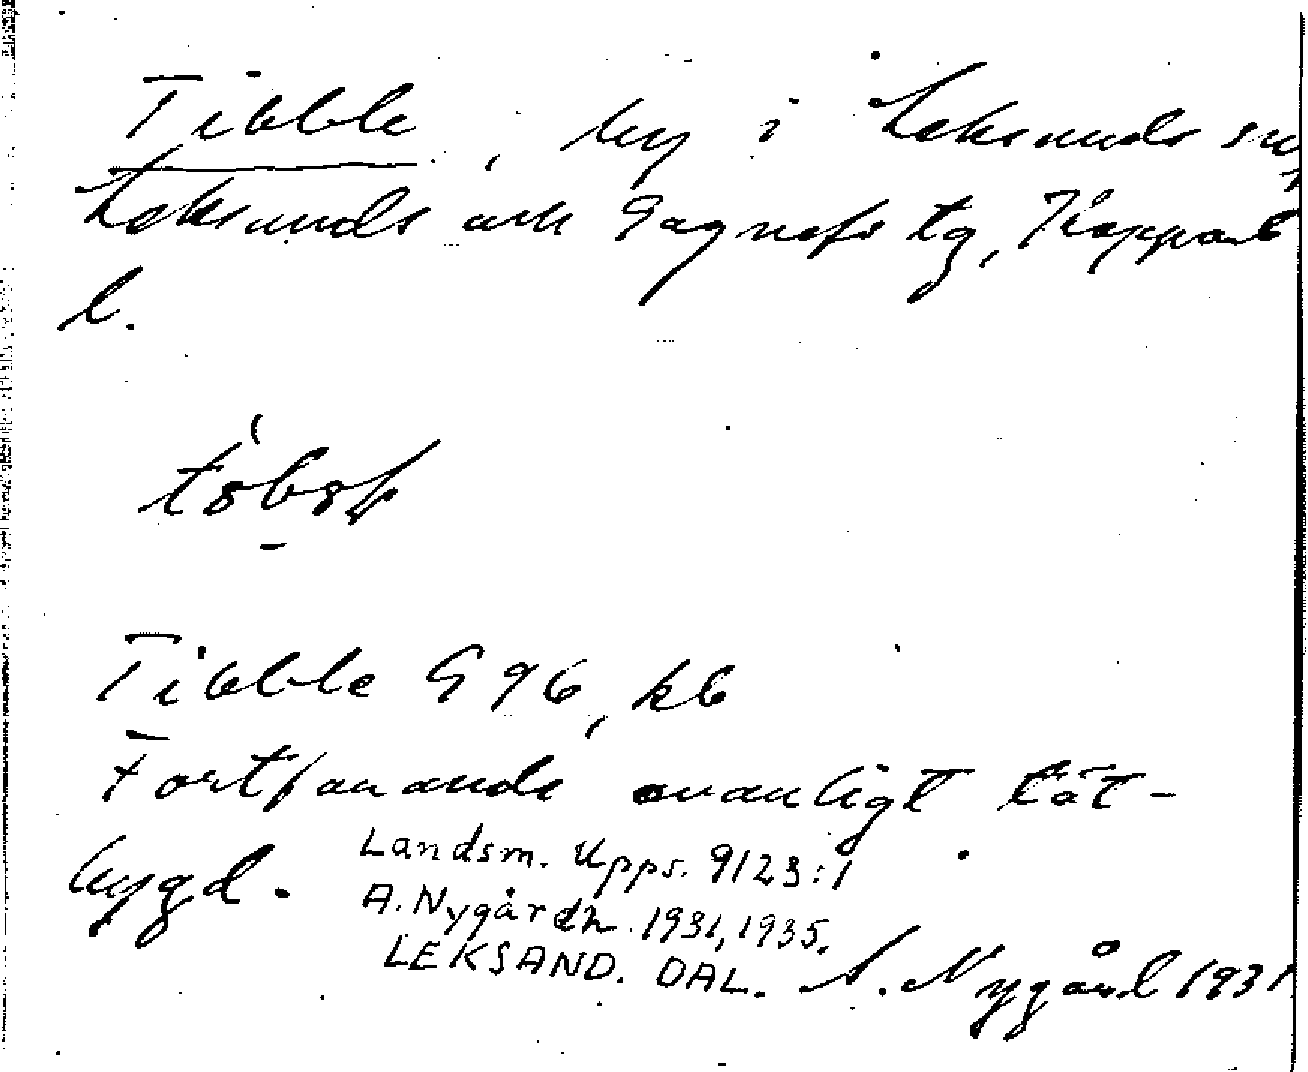 Tibble, by i Leksands sn,
Leksands och Gagnefs tg, Kopparb
l.
Tibble G 96, kb
Fortfarande ovanligt tät-
bygd.
Landsm. Upps. 9123:1
A. Nygårdh. 1931, 1935.
LEKSAND. DAL.
A. Nygård 1931